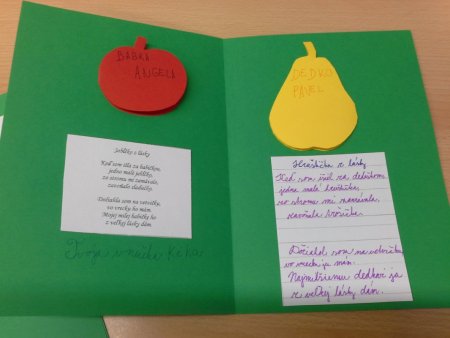 BABKA
ANGELA
Jabĺčko z lásky
Keď som išla za babičkou,
jedno malé jabĺčko,
zo stromu mi zamávalo,
zavoňalo sladučko.
Dočiahla som na vetvičku,
vo vrecku ho mám.
Mojej milej babičke ho
z veľkej lásky dám.
Tvoja vnučka Kika
DEDKO
PAVEL
Hruštička z lásky
Keď som išiel za
jedna malá hruštička,
zo stromu mi zamávala,
zavoňala
Dočiahol som na vetvičku
vo vrecku ju mám.
dedkovi ju
z veľkej lásky dám.